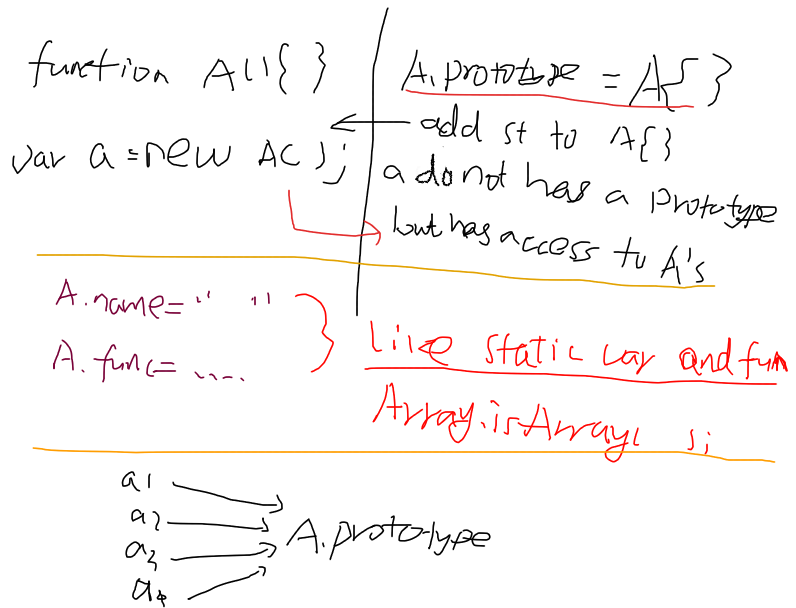 function A(){}
var a = new A();
A.prototype = A{}
add st to A{}
a do not has a prototype
but has access to A's
A.name= " "
A.func= ....
Like static var and fun
Array.isArray( );
a1
a2
a3
a4
A.prototype